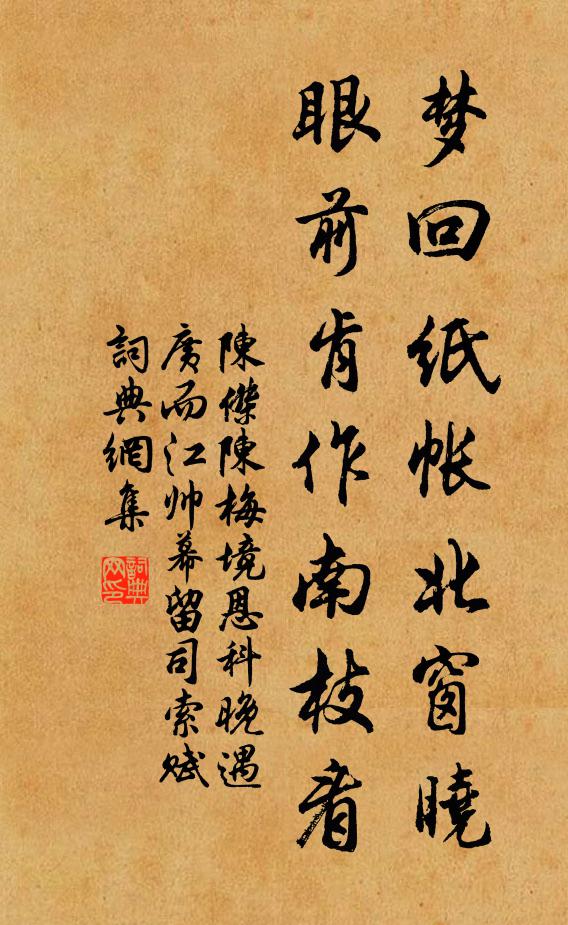 梦回纸帐北窗曉
眼前肯作南枝看
陳傑陳梅境恩科晚遇
廣而江帅幕留司索赋
詞典網集
詞典网印